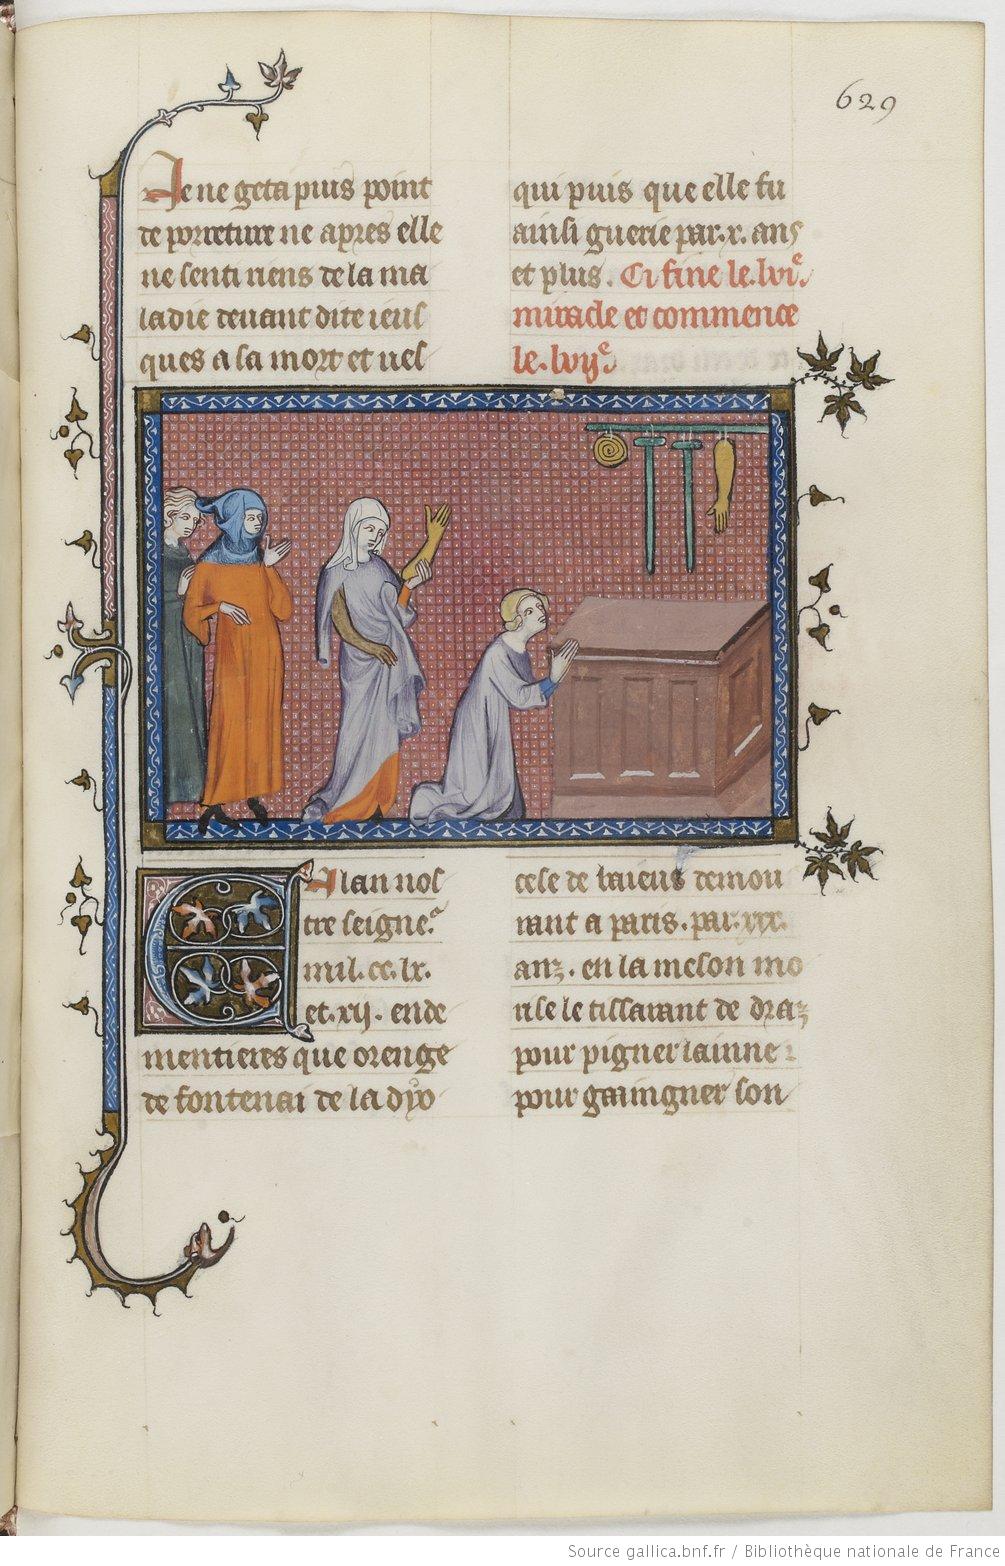 629
Je ne geta puis point
de porreture ne apres elle
ne senti riens de la ma
ladie devant dite ieus
ques a sa mort et ves
qui puis que elle fu
ainsi guerie par .x. ans
et plus. Ci fine le .lvi.e
miracle et commence
le .lvij.e
En lan nos
tre seigne.r
mil. cc. lx.
et .xij. ende
mentieres que orenge
de fontenai de la dyo
cese de baieus demou
rant a paris. par .xxx.
anz. en la meson mo
rise le tissarant de draz
pour pigner lainne
pour gaaingner son
Source gallica.bnf.fr / Bibliothèque nationale de France